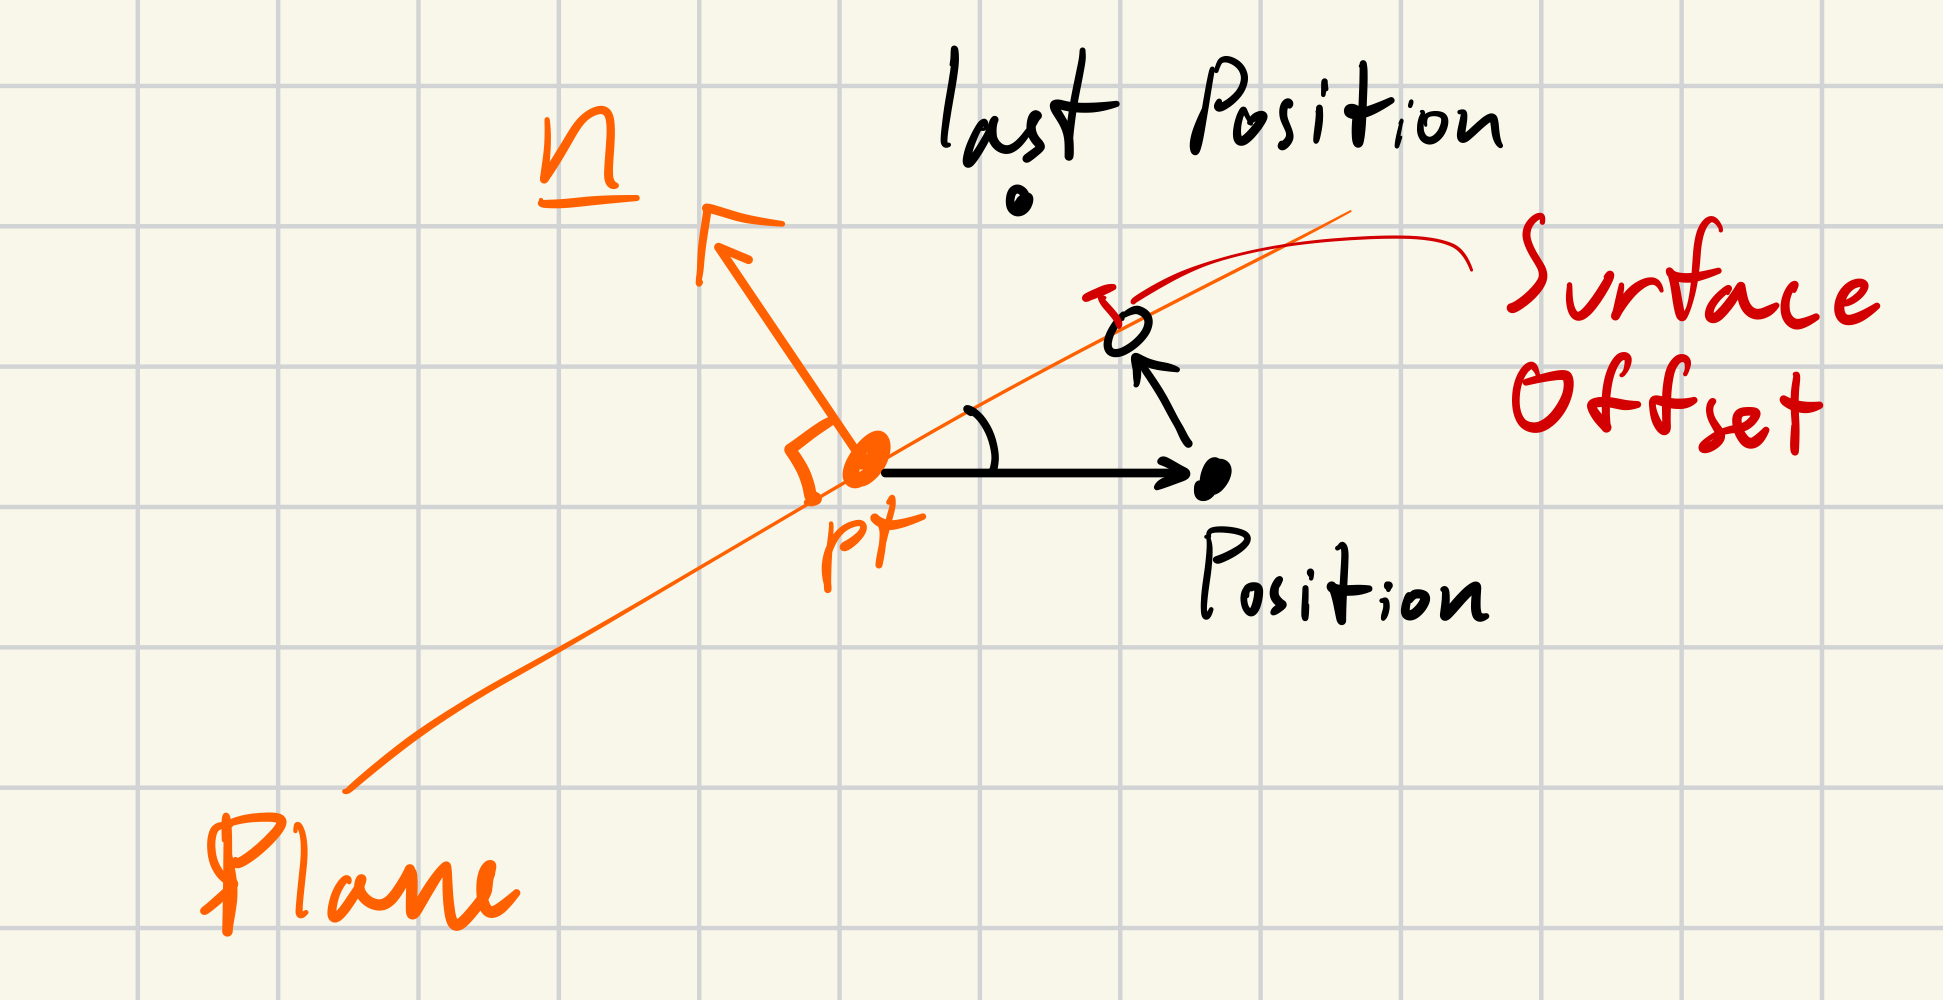 last Position
n
Surface
Offset
pt
Position
Plane